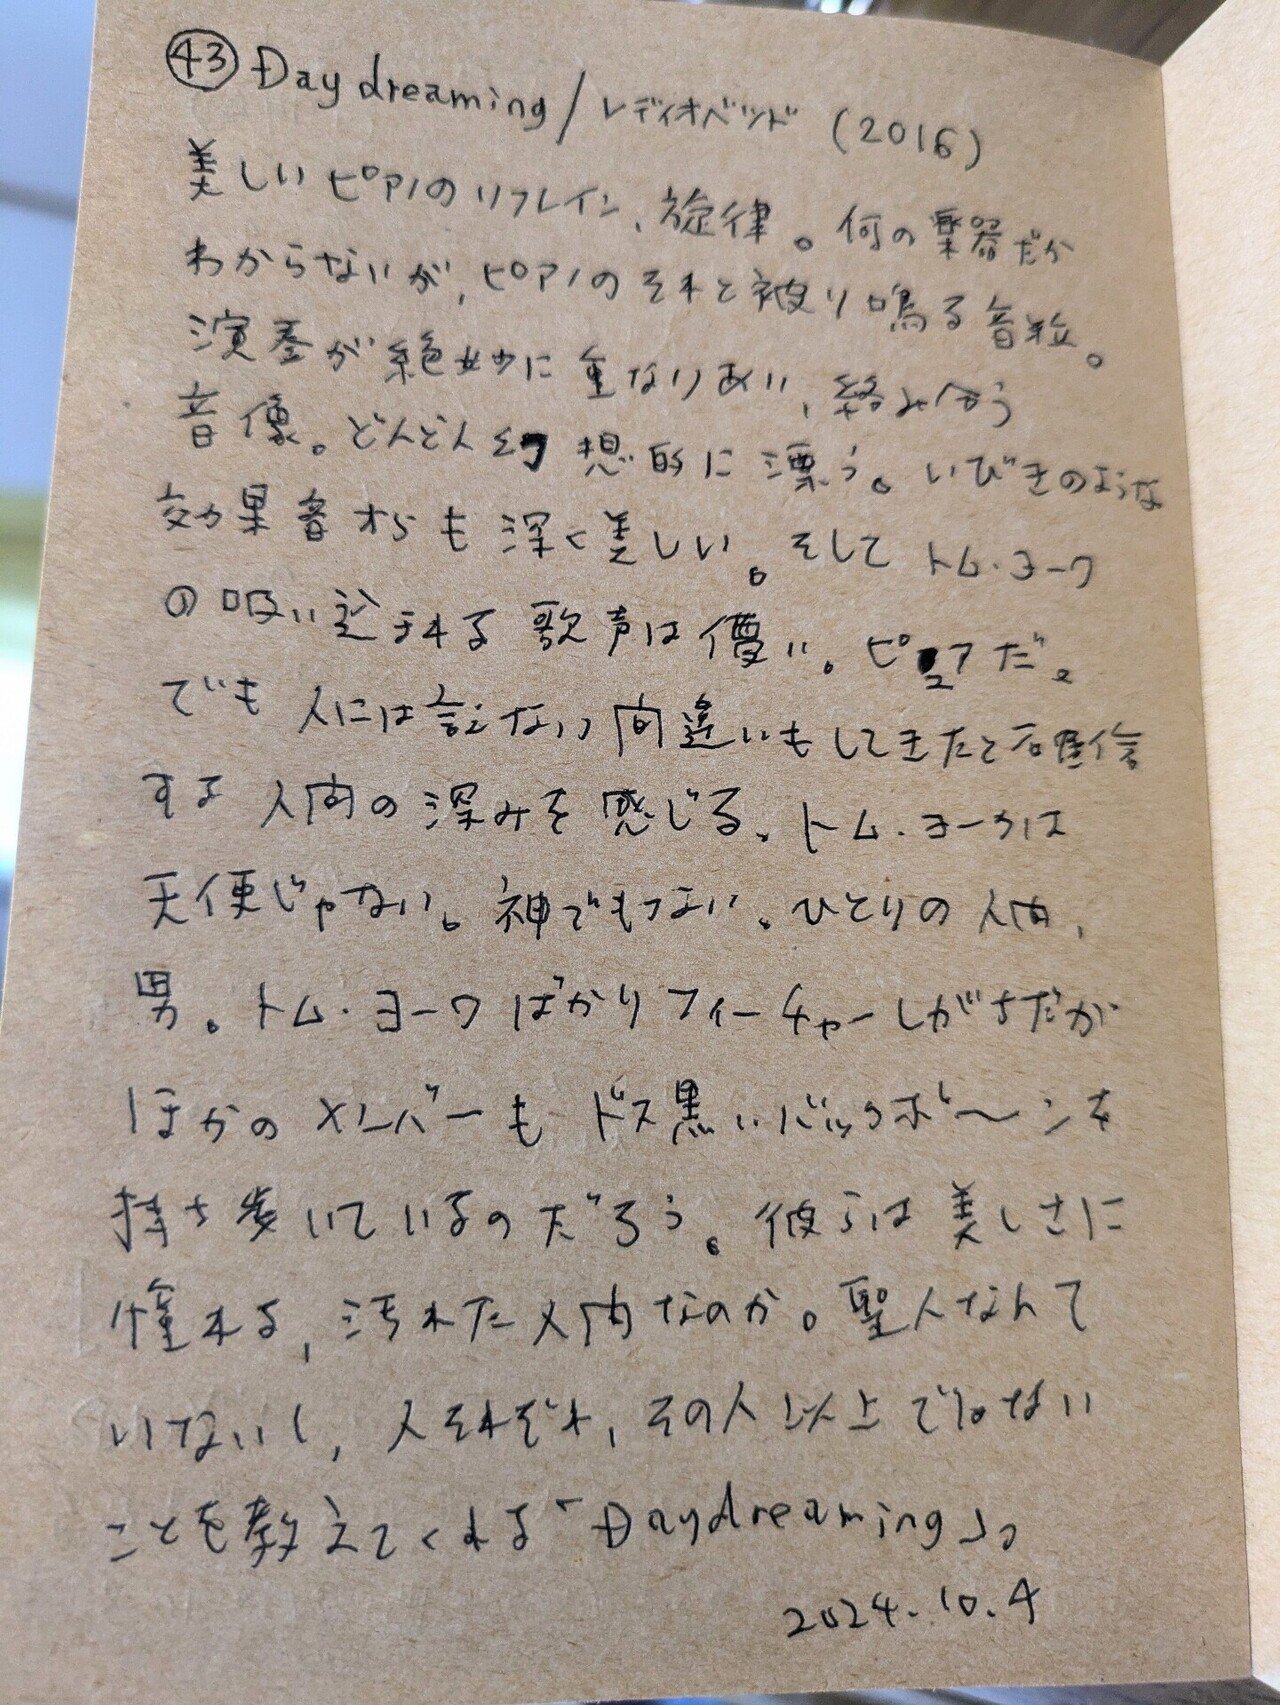 ㊸ Daydreaming / レディオヘッド (2016)
美しいピアノのリフレイン、旋律。何の楽器だか
わからないが、ピアノのそれと被り鳴る音粒。
演奏が絶妙に重なりあい、絡み合う
音像。どんどん幻想的に漂う。いびきのような
効果音すらも深く美しい。そしてトム・ヨーク
の吸い込まれる歌声は儚い。ピュアだ。
でも人には言えない間違いもしてきたと確信
する人間の深みを感じる。トム・ヨークは
天使じゃない。神でもない。ひとりの人間、
男。トム・ヨークばかりフィーチャーしがちだが
ほかのメンバーもドス黒いバックボ〜ンを
持ち歩いているのだろう。彼らは美しさに
憧れる、汚れた人間なのか。聖人なんて
いないし、人それぞれ、その人以上ではない
ことを教えてくれる「Daydreaming」。
2024.10.4